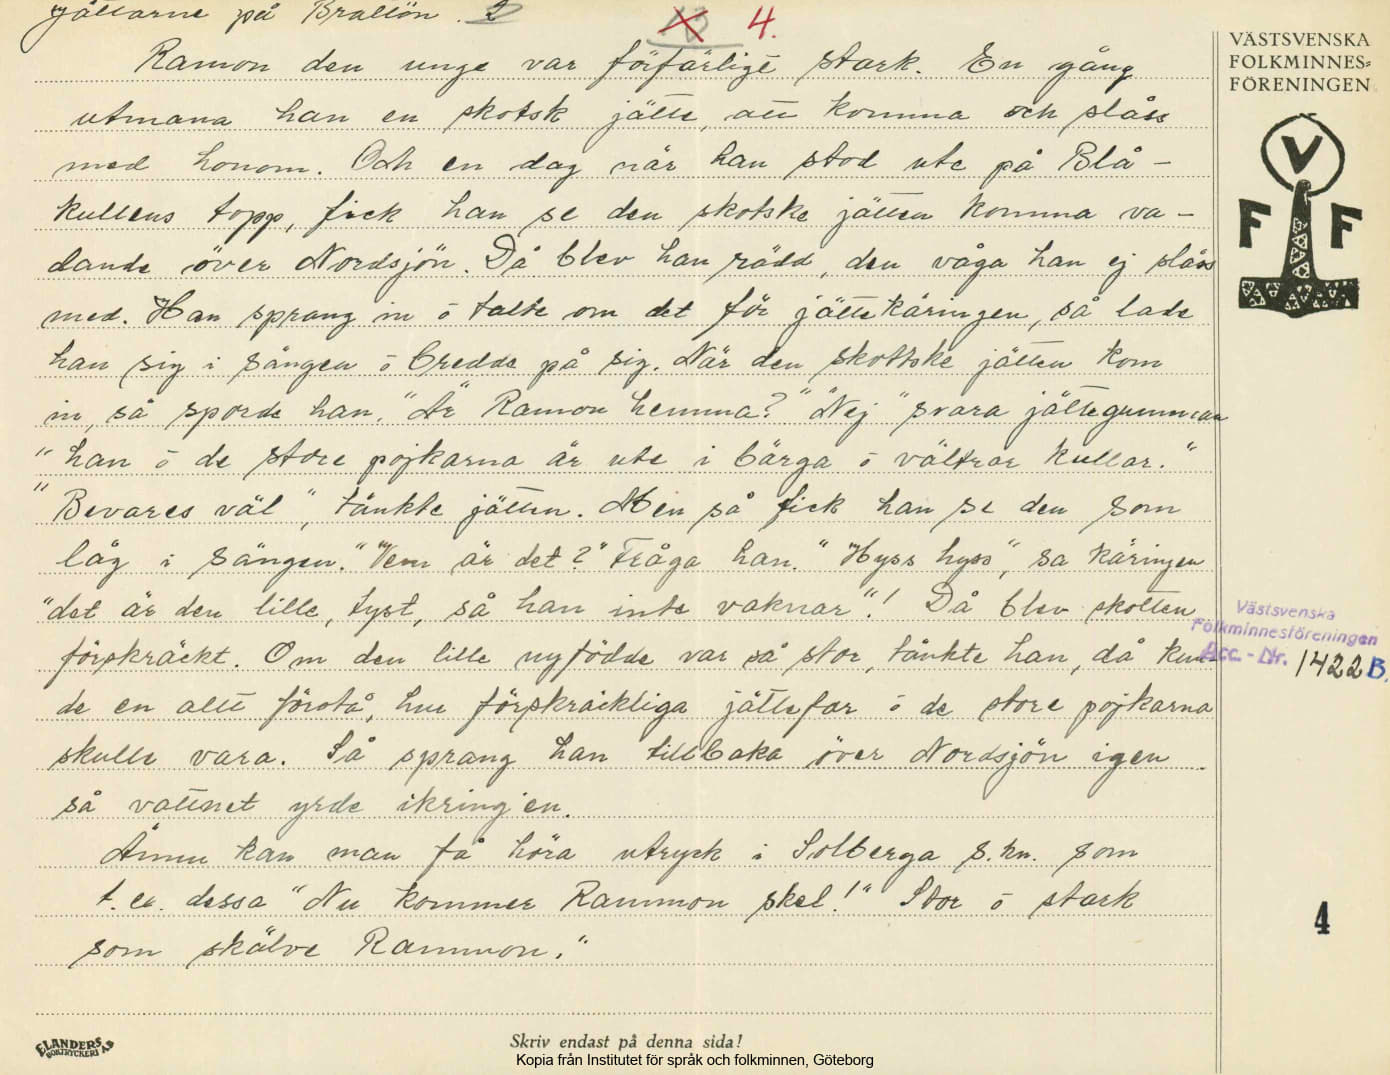 Jättarne på Brattön. 2
4.
Ramon den unge var förfärligt stark. En gång
utmana han en skotsk jätte, att komma och slåss
med honom. Och en dag när han stod ute på Blå-
kullens topp, fick han se den skotske jätten komma va-
dande över Nordsjön. Då blev han rädd, den våga han ej slåss
med. Han sprang in ó talte om det för jättekäringen, så lade
han sig i sängen ó bredde på sig. När den skottske jätten kom
in, så sporde han, "Är Ramon hemma?" "Nej" svara jättegumman
"han ó de store pojkarna är ute i bärga ó vältrar kullar."
"Bevares väl", tänkte jätten. Men så fick han se den som
låg i sängen. "Vem är det?" Fråga han. "Hyss hyss", sa käringen
"det är den lille, tyst, så han inte vaknar"! Då blev skotten
förskräckt. Om den lille nyfödde var så stor, tänkte han, då kun-
de en allt förstå, hur förskräckliga jättefar ó de store pojkarna
skulle vara. Så sprang han tillbaka över Nordsjön igen
så vattnet yrde ikring'en.
Ännu kan man få höra utryck i Solberga s.kn. som
t. ex. dessa "Nu kommer Rammon skel!" Stor ó stark
som skälve Rammon."
VÄSTSVENSKA
FOLKMINNES-
FÖRENINGEN
V
F F
Västsvenska
Folkminnesföreningen
Acc.-Nr. 1422 B.
4
ELANDERS
BOKTRYCKERI AB
Skriv endast på denna sida!
Kopia från Institutet för språk och folkminnen, Göteborg